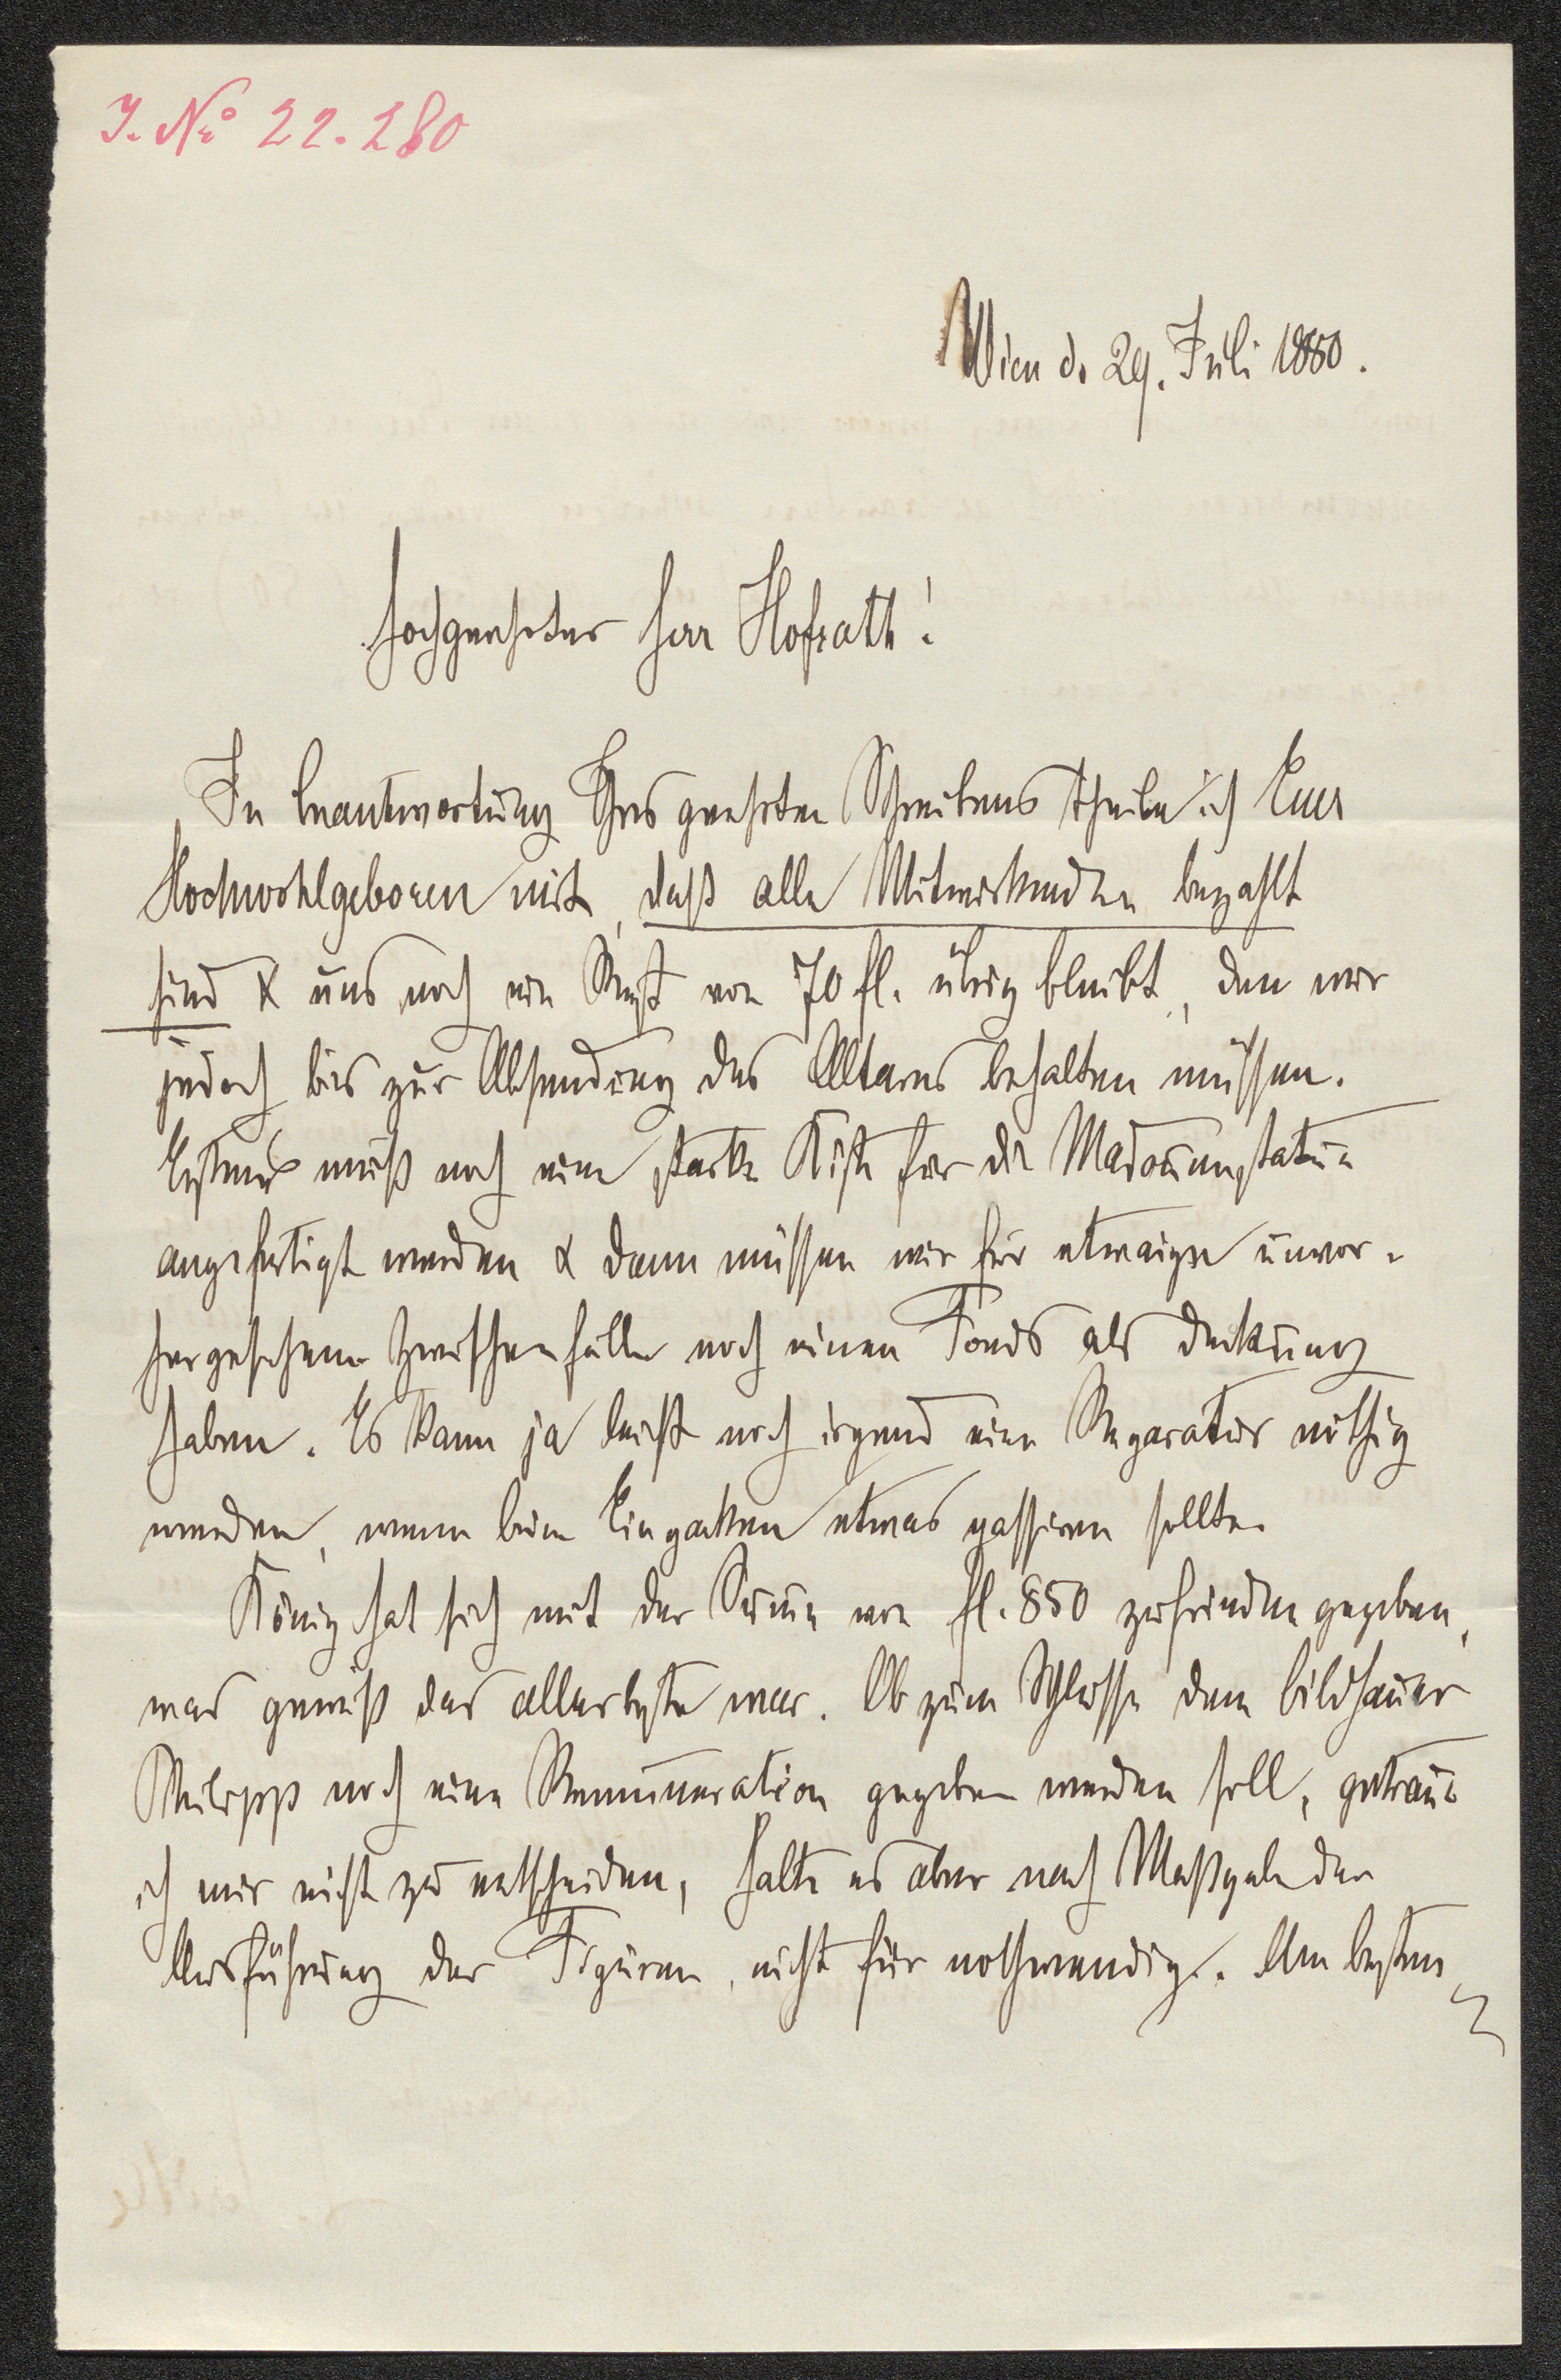 J. No 22.280
Wien d. 29. Juli 1880.
Hochgeehrter Herr Hofrath!
In Beantwortung Ihres geehrten Schreibens theile ich Euer
Hochwohlgeboren mit, daß alle Mitwirkenden bezahlt
sind & uns noch ein Rest von 70 fl. übrig bleibt, den wir
jedoch bis zur Absendung des Altares behalten müssen.
Erstens muß noch eine starke Kiste für die Madonnenstatue
angefertigt werden & dann müssen wir für etwaige unvor-
hergesehene Zwischenfälle noch einen Fonds als Deckung
haben. Es kann ja leicht noch irgend eine Reparatur nöthig
werden, wenn beim Einpacken etwas passiren sollte.
König hat sich mit der Summe von fl. 850 zufrieden gegeben,
was gewiß das allerbeste war. Ob zum Schlusse dem Bildhauer
noch eine Remuneration gegeben werden soll, getraue
ich mir nicht zu entscheiden, halte es aber nach Maßgabe der
Ausführung der Figuren, nicht für nothwendig. Am besten